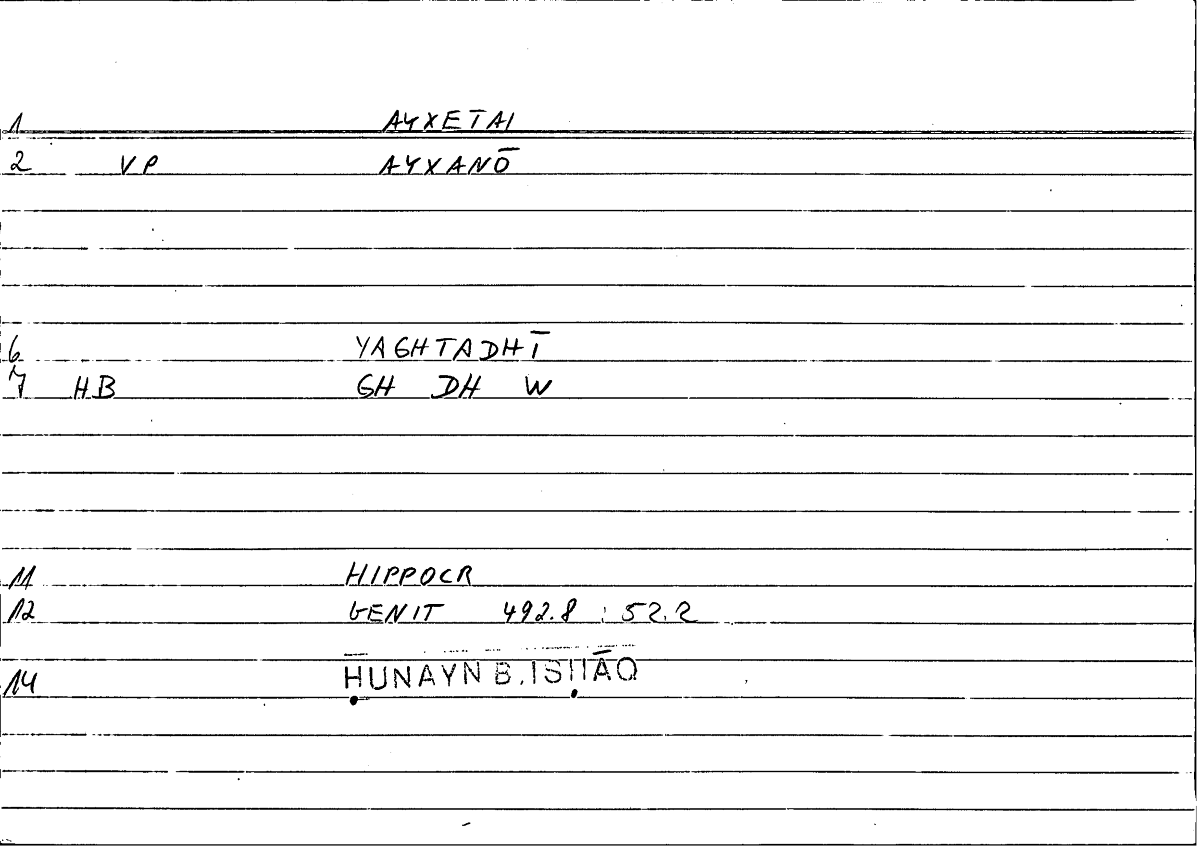 1 AYXETAI
2 VP AYXANŌ
6 YAGHTADHĪ
7 HB GH DH W
11 HIPPOCR
12 GENIT 492.8 : 52.2
14 ḤUNAYN B. ISḤĀQ